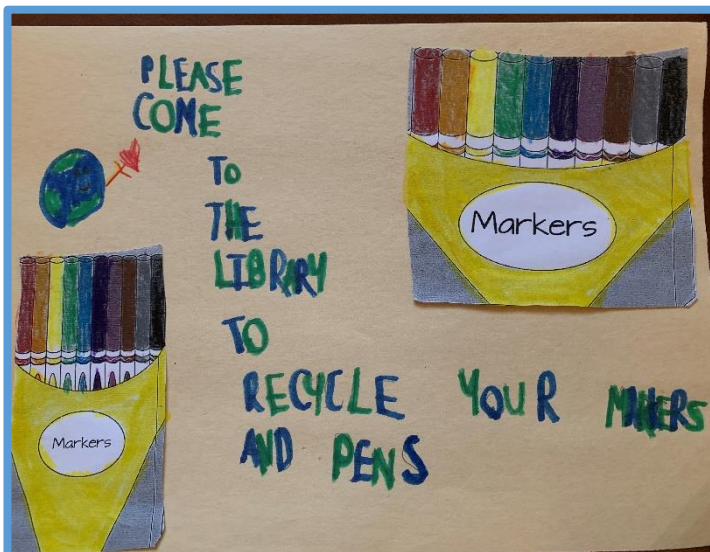 PLEASE
COME
TO
THE
LIBRARY
TO
RECYCLE YOUR
AND PENS
Markers
Markers